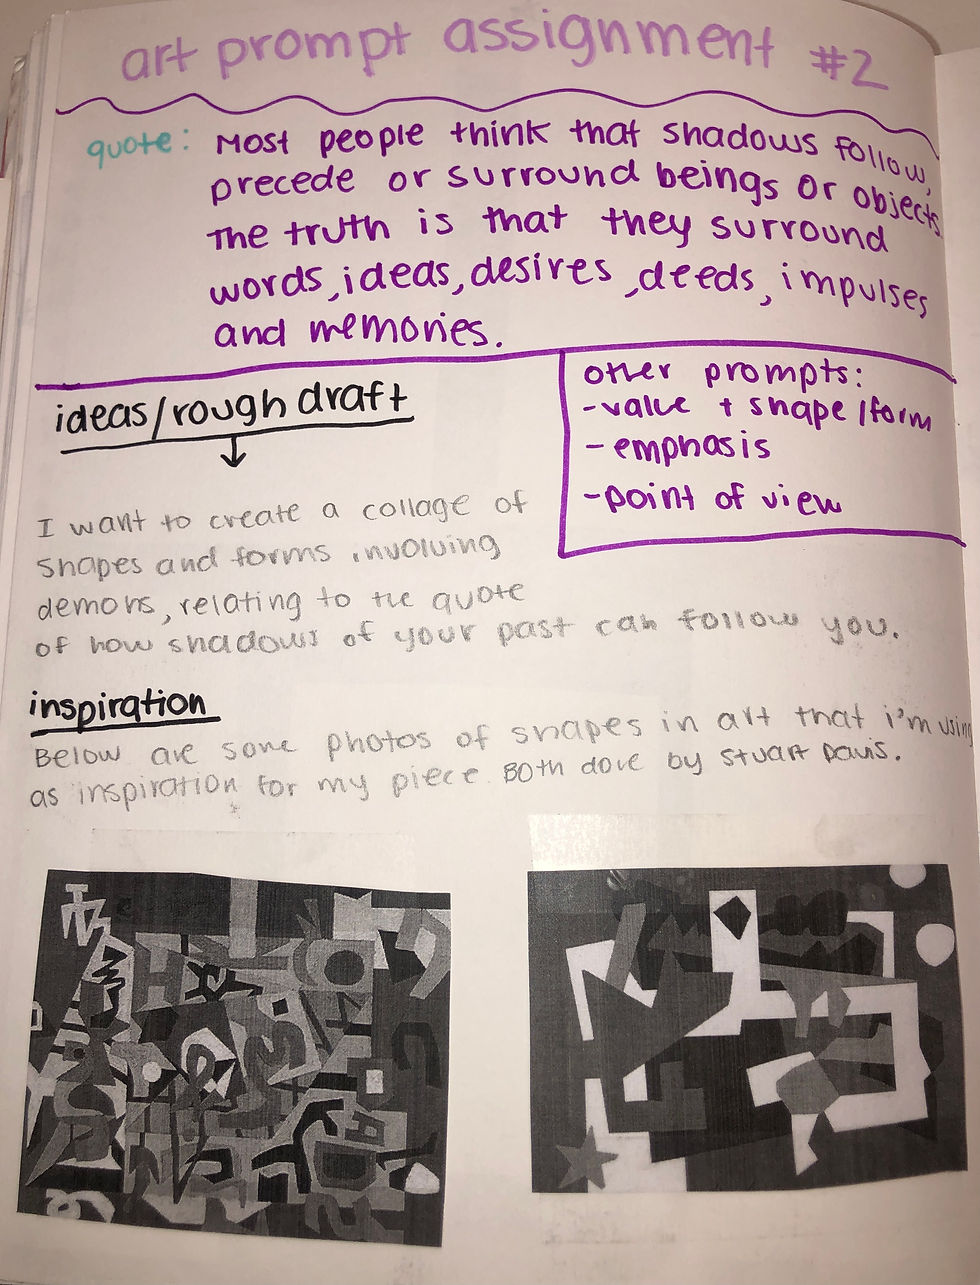 art prompt assignment #2
quote: Most people think that shadows follow,
precede or surround beings or objects.
The truth is that they surround
words, ideas, desires, deeds, impulses
and memories.
ideas/rough draft
other prompts:
-value + shape/form
-emphasis
-point of view
I want to create a collage of
shapes and forms involving
demons, relating to the quote
of how shadows of your past can follow you.
inspiration
Below are some photos of shapes in art that i'm using
as inspiration for my piece. Both done by Stuart Davis.